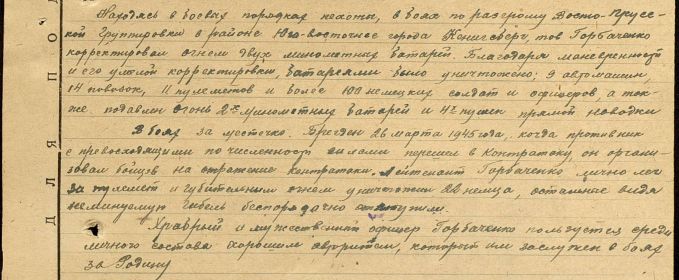 Находясь в боевых порядках пехоты, в боях по разгрому Восто-Прусс-
кой группировки в районе Юго-восточнее города Кенигсберг, тов Горбаченко
корректировал огнем двух минометных батарей. Благодаря маневренности
и его умелой корректировки, батареями было уничтожено: 9 автомашин,
14 повозок, 11 пулеметов и более 100 немецких солдат и офицеров, а так-
же подавлен огонь 2х минометных батарей и 4х пушек прямой наводки
В боях за местечко. 26 марта 1945 года, когда противник
с превосходящими по численности силами перешел в контратаку, он органи-
зовал бойцов на отражение контратаки. Лейтенант Горбаченко лично лег
за пулемет и губительным огнем уничтожил 22 немца, остальные видя
неминуемую гибель беспорядочно отступили.
Храбрый и мужественный офицер Горбаченко пользуется среди
личного состава хорошим авторитетом, который им заслужен в боях
за Родину
ДЛЯ ПО